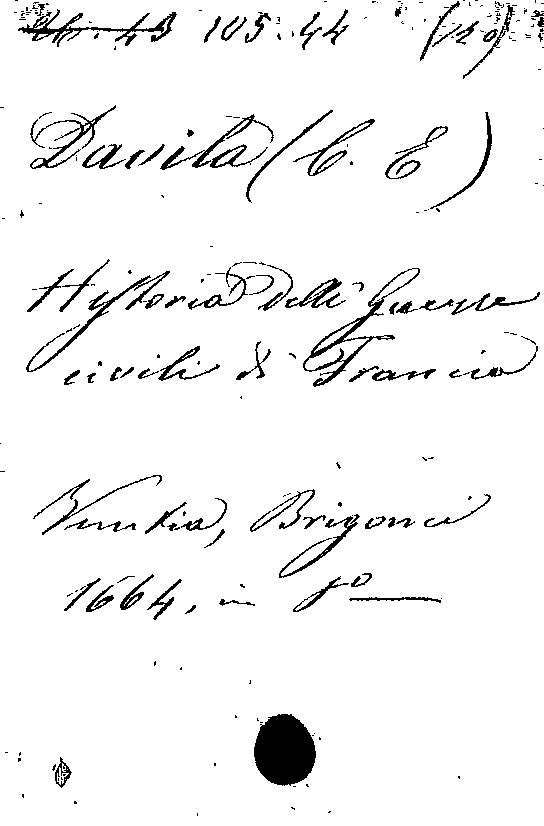 105.44
Davila (C. E)
Historia delle Guerre
civili di Francia
Venetia, Brigonci
1664, in 8º